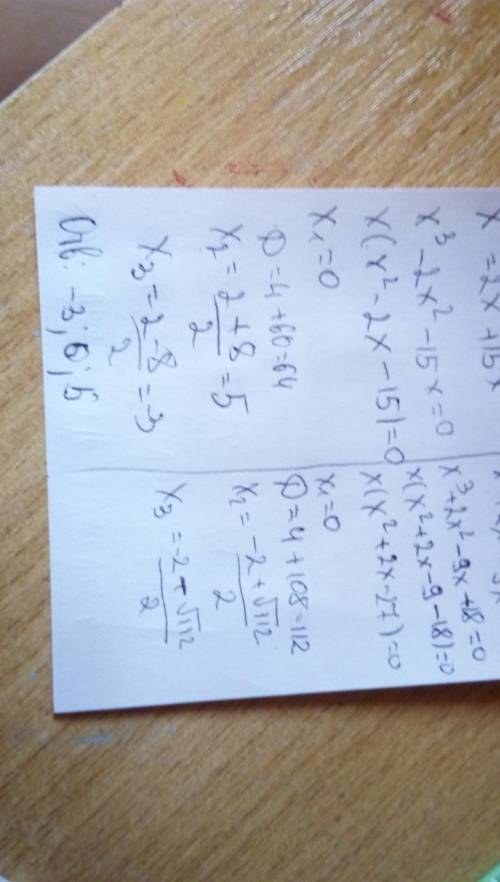 x³ - 2x² - 15x = 0
x(x² - 2x - 15) = 0
x₁ = 0
D = 4 + 60 = 64
x₂ = (2 + 8)/2 = 5
x₃ = (2 - 8)/2 = -3
Отв: -3; 0; 5
x³ + 2x² - 9x + 18 = 0
x(x² + 2x - 9 - 18) = 0
x(x² + 2x - 27) = 0
x₁ = 0
D = 4 + 108 = 112
x₂ = (-2 + √112)/2
x₃ = (-2 - √112)/2